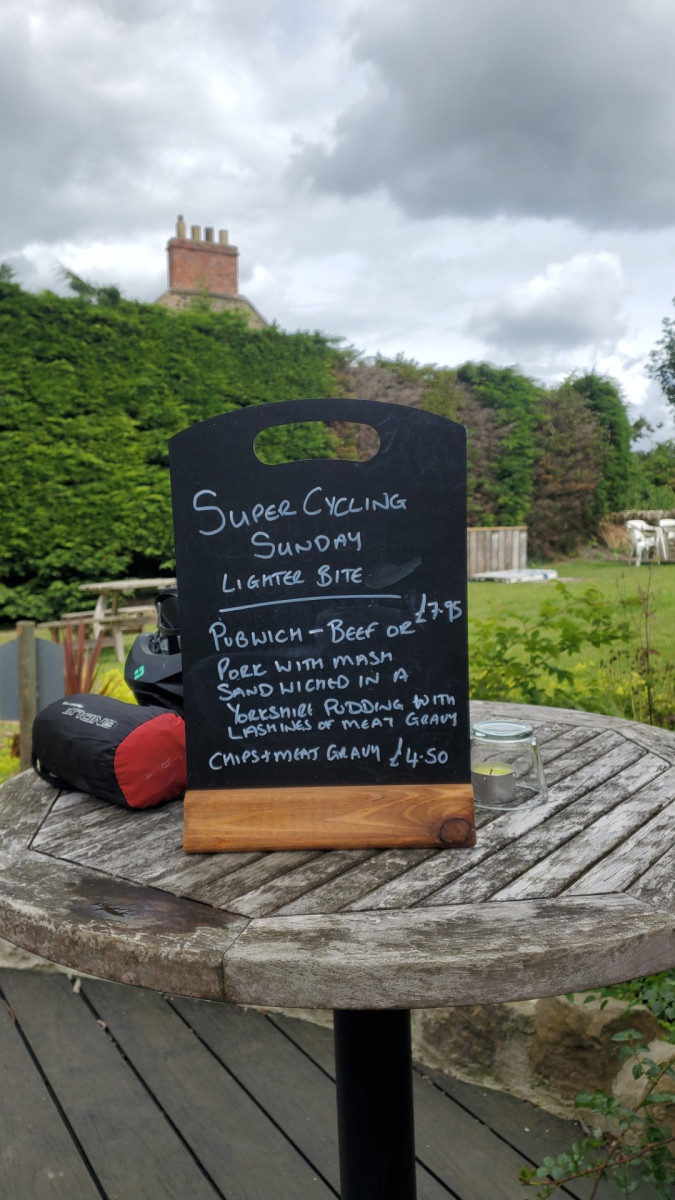 Super Cycling
Sunday
Lighter Bite
Pubwich - Beef or £7.95
Pork with mash
Sandwiched in a
Yorkshire Pudding with
Lashings of meat gravy
Chips + meat gravy £4.50
ENDURA